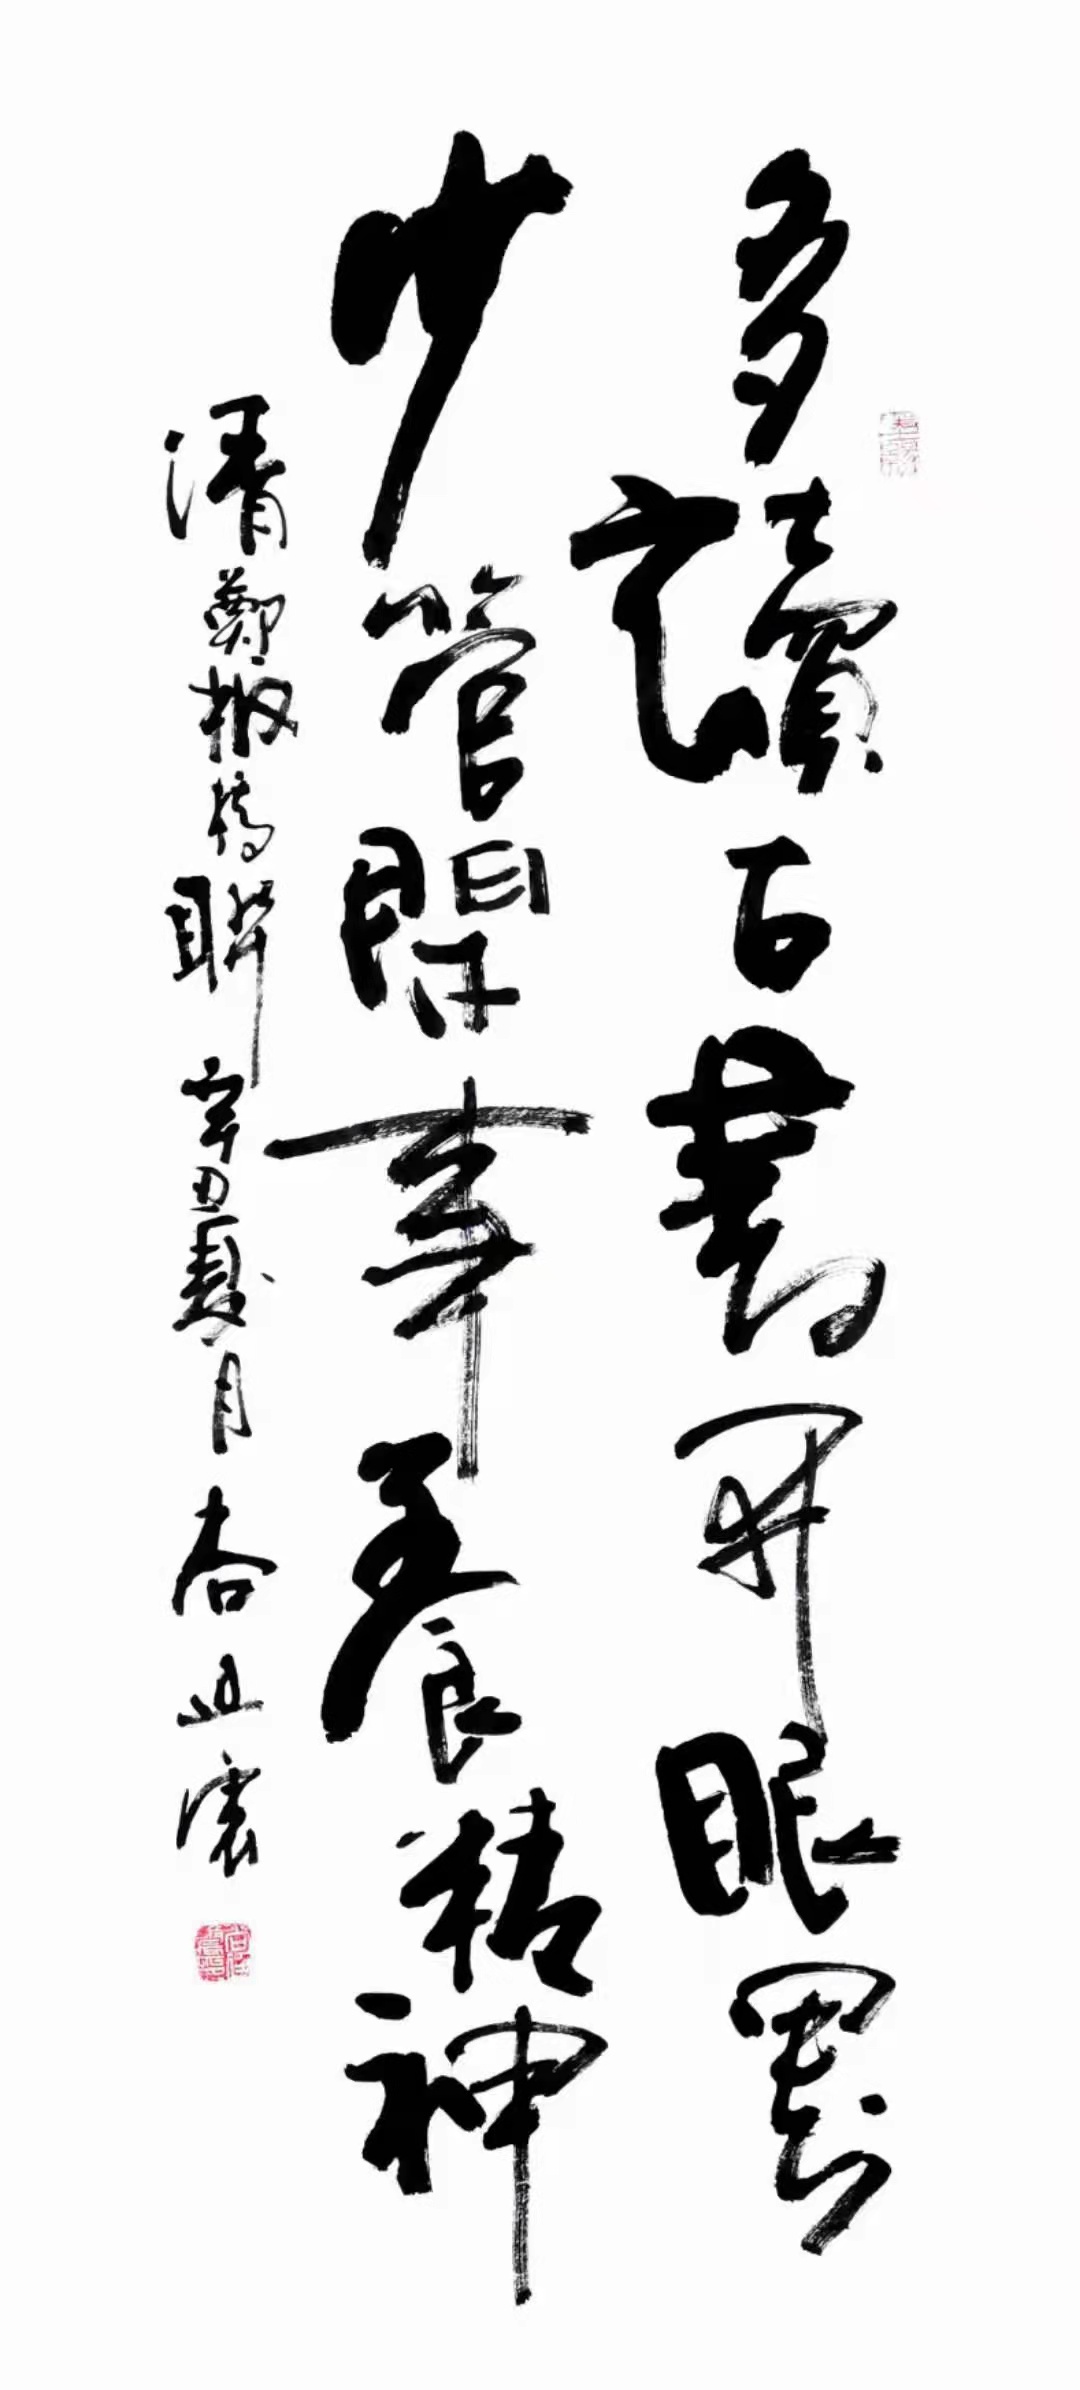 多讀古書開眼界
少管閒事養精神
清鄭板橋聯辛丑夏月杏